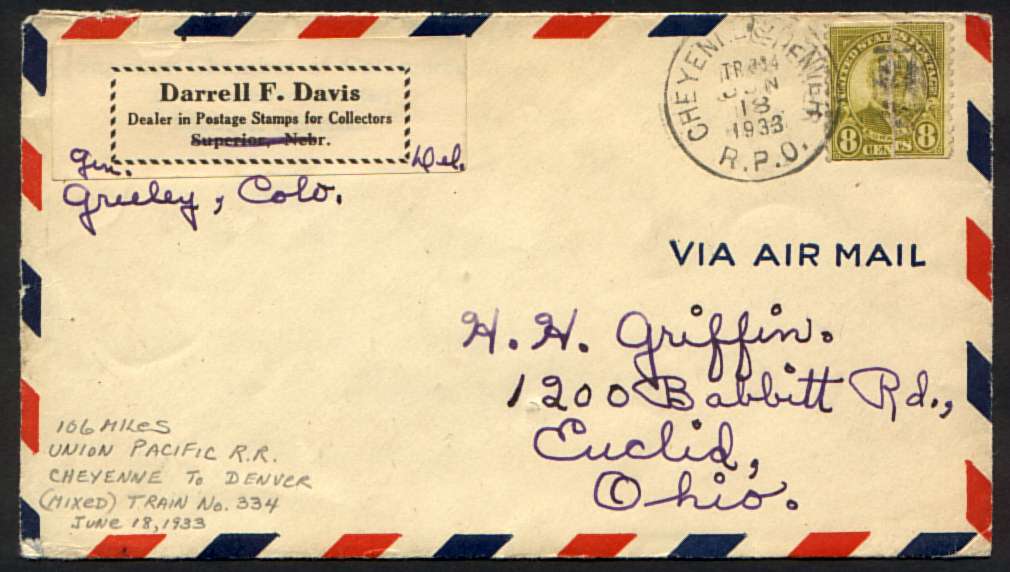 Darrell F. Davis
Dealer in Postage Stamps for Collectors
Superior, Nebr.
Gen. Del.
Greeley, Colo.
CHEYENNE & DENVER
TR 334
JUN
18
1933
R.P.O.
UNITED STATES POSTAGE
8 CENTS 8
VIA AIR MAIL
H. H. Griffin.
1200 Babbitt Rd.,
Euclid,
Ohio.
106 MILES
UNION PACIFIC R.R.
CHEYENNE TO DENVER
(MIXED) TRAIN No. 334
JUNE 18, 1933